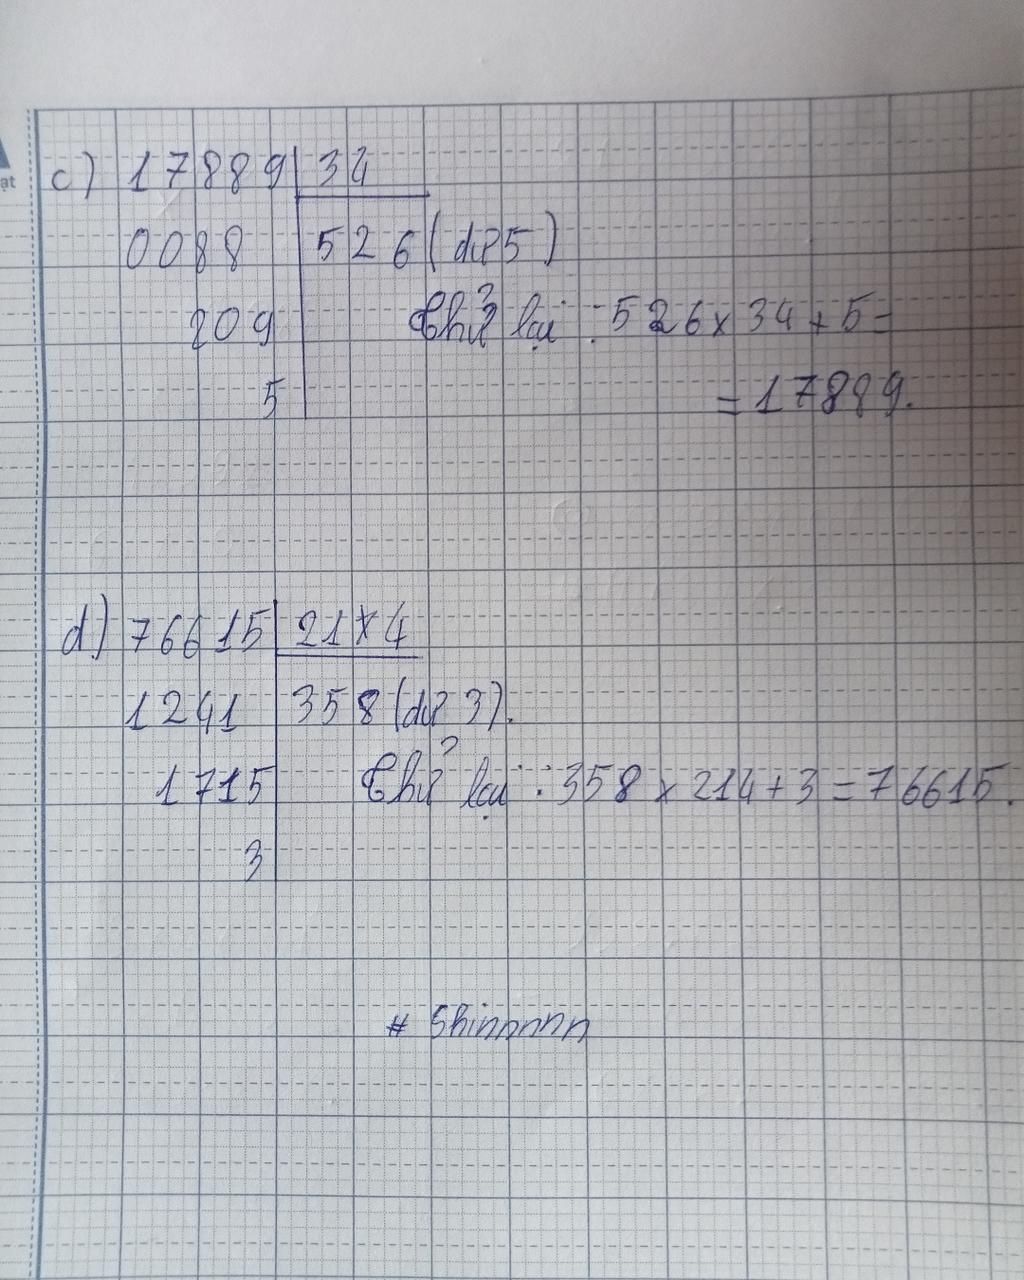 c) 17889 34
0088 526 (dư 5)
209 Thử lại : 526 x 34 + 5 =
5 = 17889.
d) 76615 214
1241 358 (dư 3).
1715 Thử lại : 358 x 214 + 3 = 76615.
3
# Shinnnnn